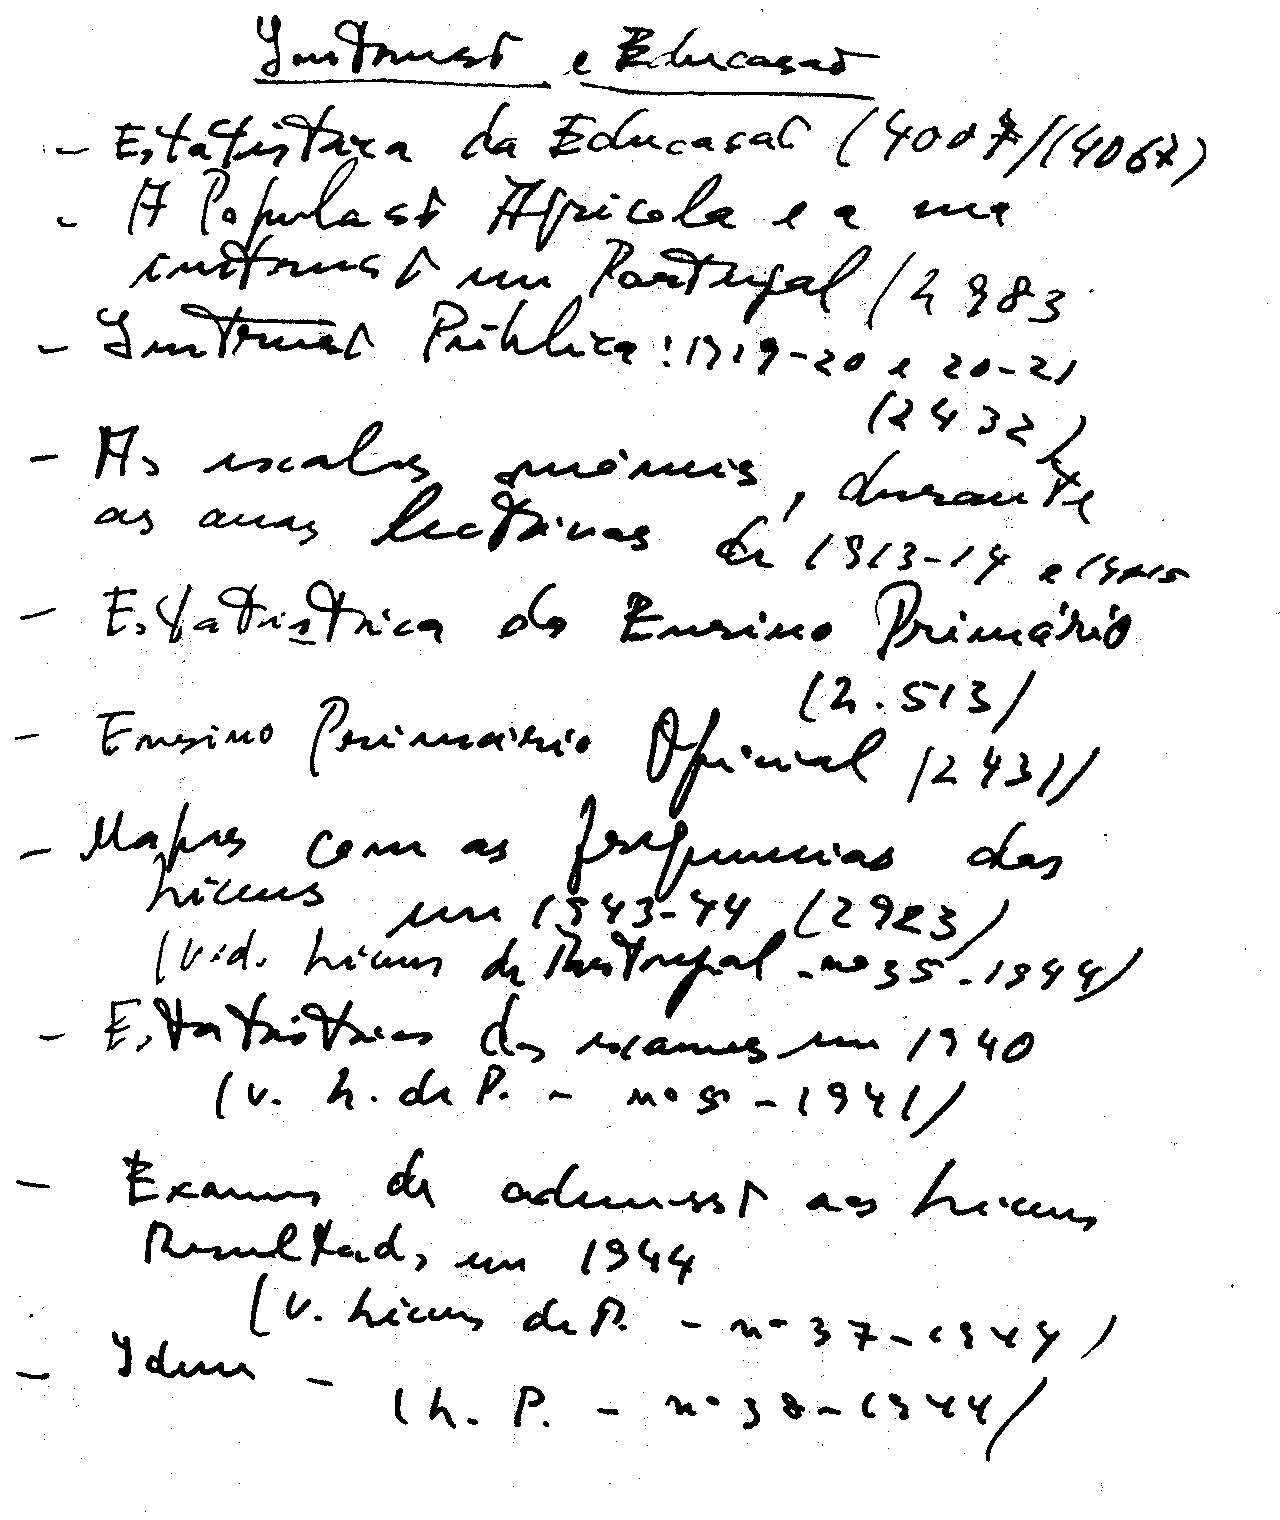 Instrução e Educação
- Estatística da Educação (4007/(4067)
- A População Agrícola e a sua
instrução em Portugal (2983
- Instrução Pública: 1919-20 e 20-21
(2432)
- As escolas móveis, durante
os anos lectivos de 1913-14 e 1915
- Estatística do Ensino Primário
(2.513)
- Ensino Primário Oficial (2431)
- Mapas com as frequências dos
Liceus em 1943-44 (2923)
(vid. Liceus de Portugal - nº 35 - 1944)
- Estatísticas dos exames em 1940
(v. L. de P. - nº - 1941)
- Exames de admissão aos Liceus
Resultados em 1944
(v. Liceus de P. - nº 37 - 1944)
- Idem -
(L. P. - nº 38 - 1944)